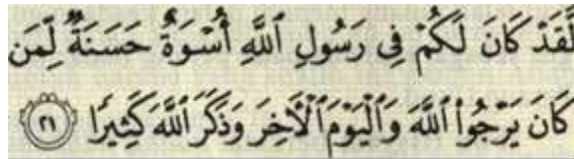 لَّقَدْ كَانَ لَكُمْ فِى رَسُولِ ٱللَّهِ أُسْوَةٌ حَسَنَةٌ لِّمَن
كَانَ يَرْجُوا۟ ٱللَّهَ وَٱلْيَوْمَ ٱلْـَٔاخِرَ وَذَكَرَ ٱللَّهَ كَثِيرًا ٢١